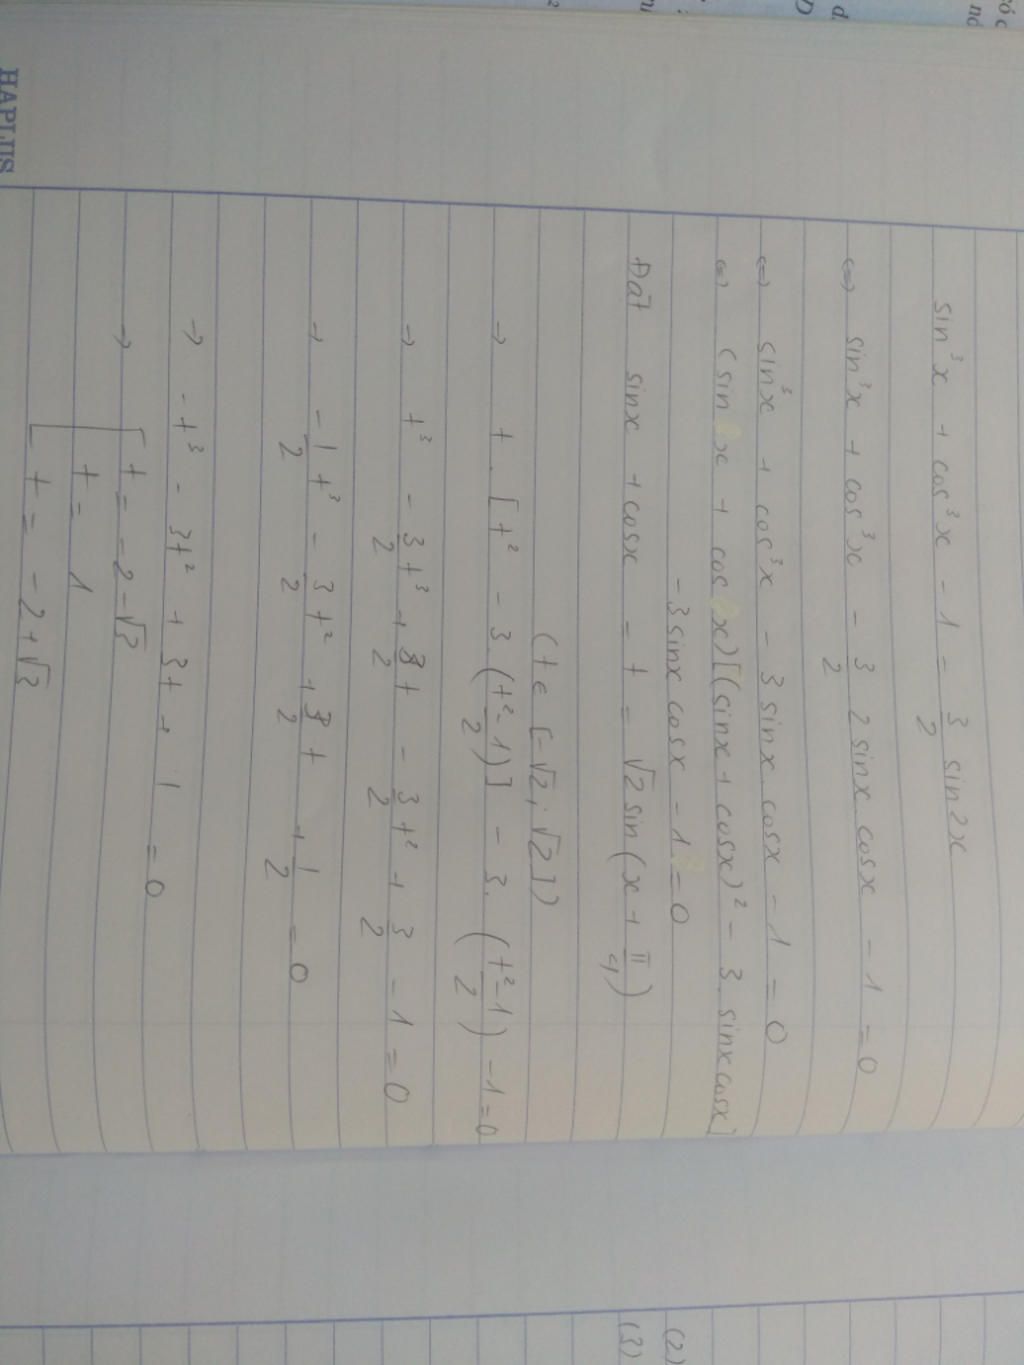 sin³x + cos³x - 1 = 3/2 sin2x
⇔ sin³x + cos³x - 3/2 2sinx cosx - 1 = 0
⇔ sin³x + cos³x - 3sinx cosx - 1 = 0
⇔ (sin x + cos x)[(sinx + cosx)² - 3. sinxcosx]
- 3sinx cosx - 1 = 0
Đặt sinx + cosx = t = √2 sin(x + π/4)
(t ∈ [-√2; √2])
→ t . [t² - 3.(t²-1/2)] - 3. (t²-1/2) - 1 = 0
→ t³ - 3/2 t³ + 3/2 t - 3/2 t² + 3/2 - 1 = 0
→ -1/2 t³ - 3/2 t² + 3/2 t + 1/2 = 0
→ -t³ - 3t² + 3t + 1 = 0
→ [ t = -2 - √3
t = 1
t = -2 + √3
HAPLUS
(2)
(3)